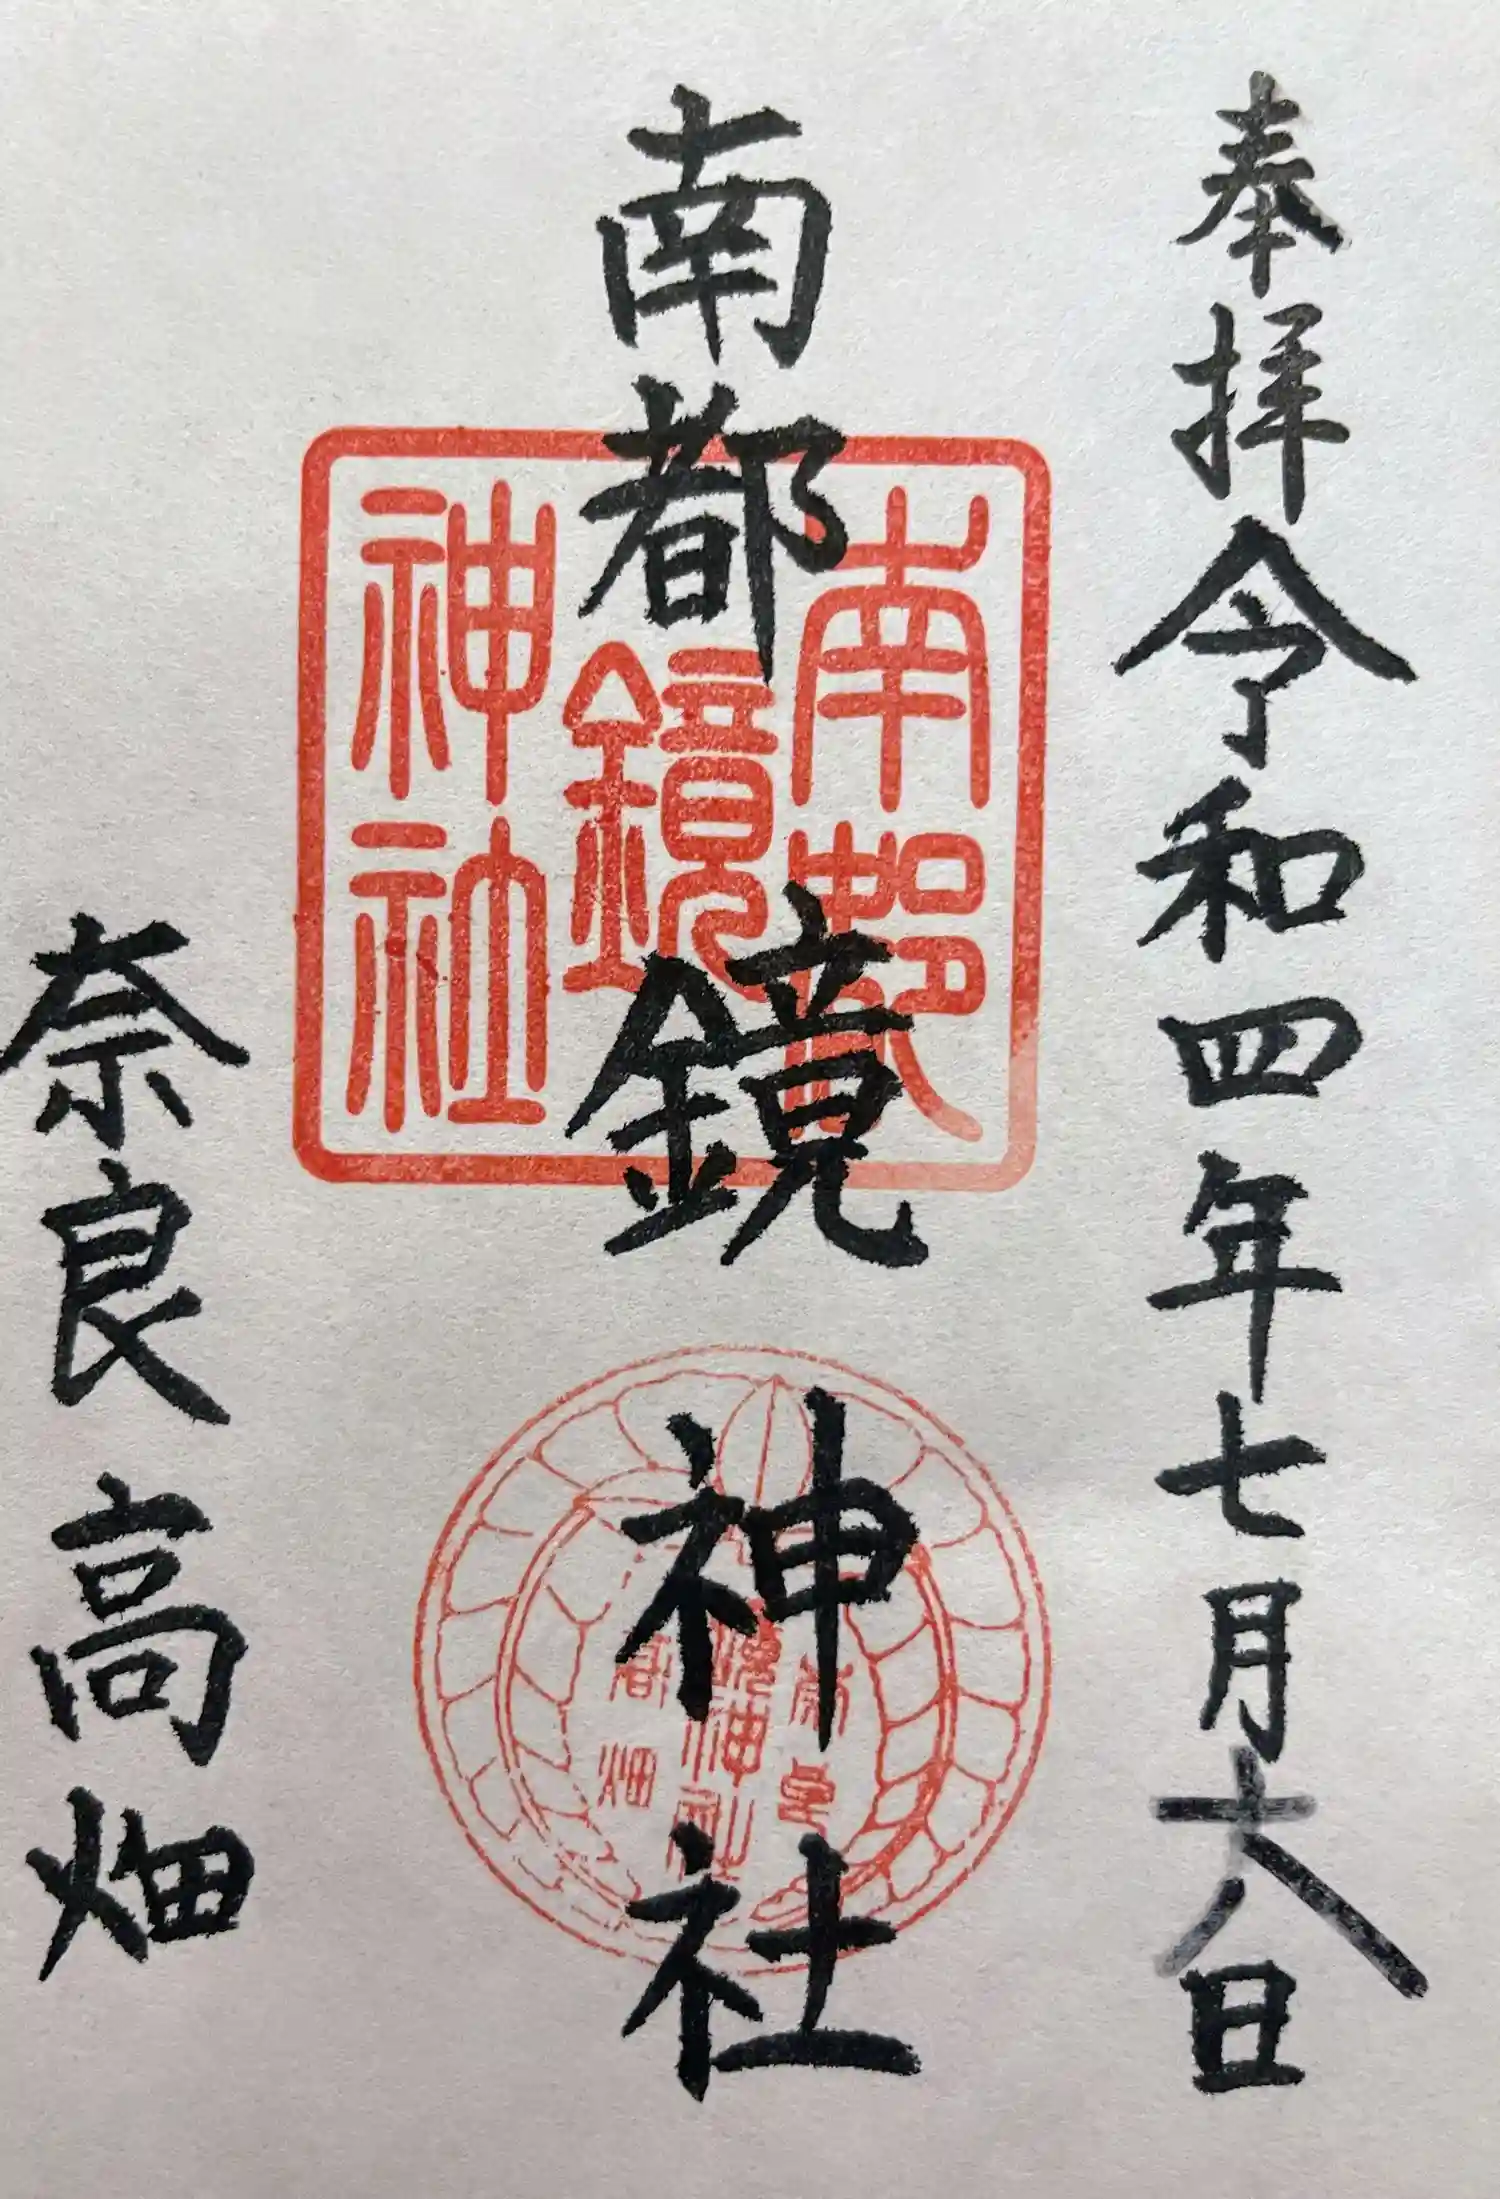 奉拝令和四年七月十八日
南都鏡神社
南都
鏡
神社
鏡神社
高畑
奈良高畑